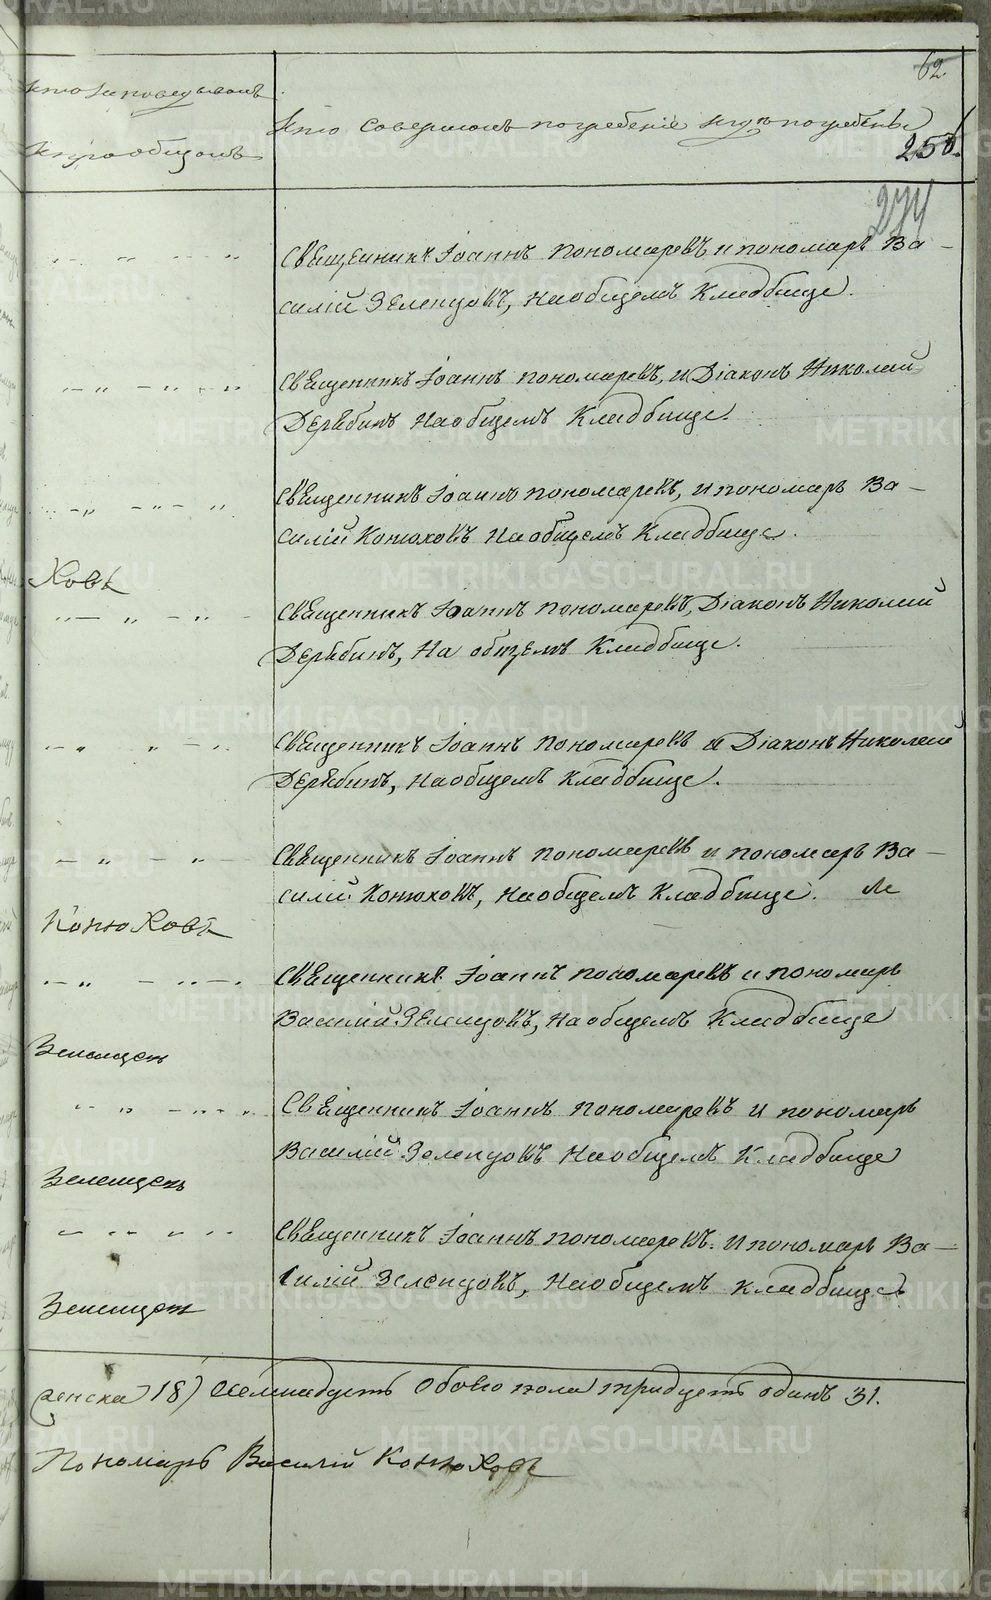 62.
Кто исповедывалъ
и приобщалъ
Кто совершалъ погребеніе и гдѣ погребены
250.
274
Священникъ Іоаннъ Пономаревъ и пономарь Ва-
силій Зеленцовъ, на общемъ кладбище.
Священникъ Іоаннъ Пономаревъ, и Діаконъ Николай
Дерябинъ на общемъ кладбище.
Священникъ Іоаннъ Пономаревъ, и пономарь Ва-
силій Конюховъ на общемъ кладбище.
ховъ
Священникъ Іоаннъ Пономаревъ, Діаконъ Николай
Дерябинъ, на общемъ кладбище.
Священникъ Іоаннъ Пономаревъ и Діаконъ Николай
Дерябинъ, на общемъ кладбище.
Священникъ Іоаннъ Пономаревъ и пономарь Ва-
силій Конюховъ, на общемъ кладбище.
Конюховъ
Священникъ Іоаннъ Пономаревъ и пономарь
Василій Зеленцовъ, на общемъ кладбище
Священникъ Іоаннъ Пономаревъ и пономарь
Василій Зеленцовъ на общемъ кладбище
Священникъ Іоаннъ Пономаревъ. и пономарь Ва-
силій Зеленцовъ, на общемъ кладбище
женска 18) обоего пола тридцать одинъ 31.
Пономарь Василій Конюховъ
METRIKI.GASO-URAL.RU